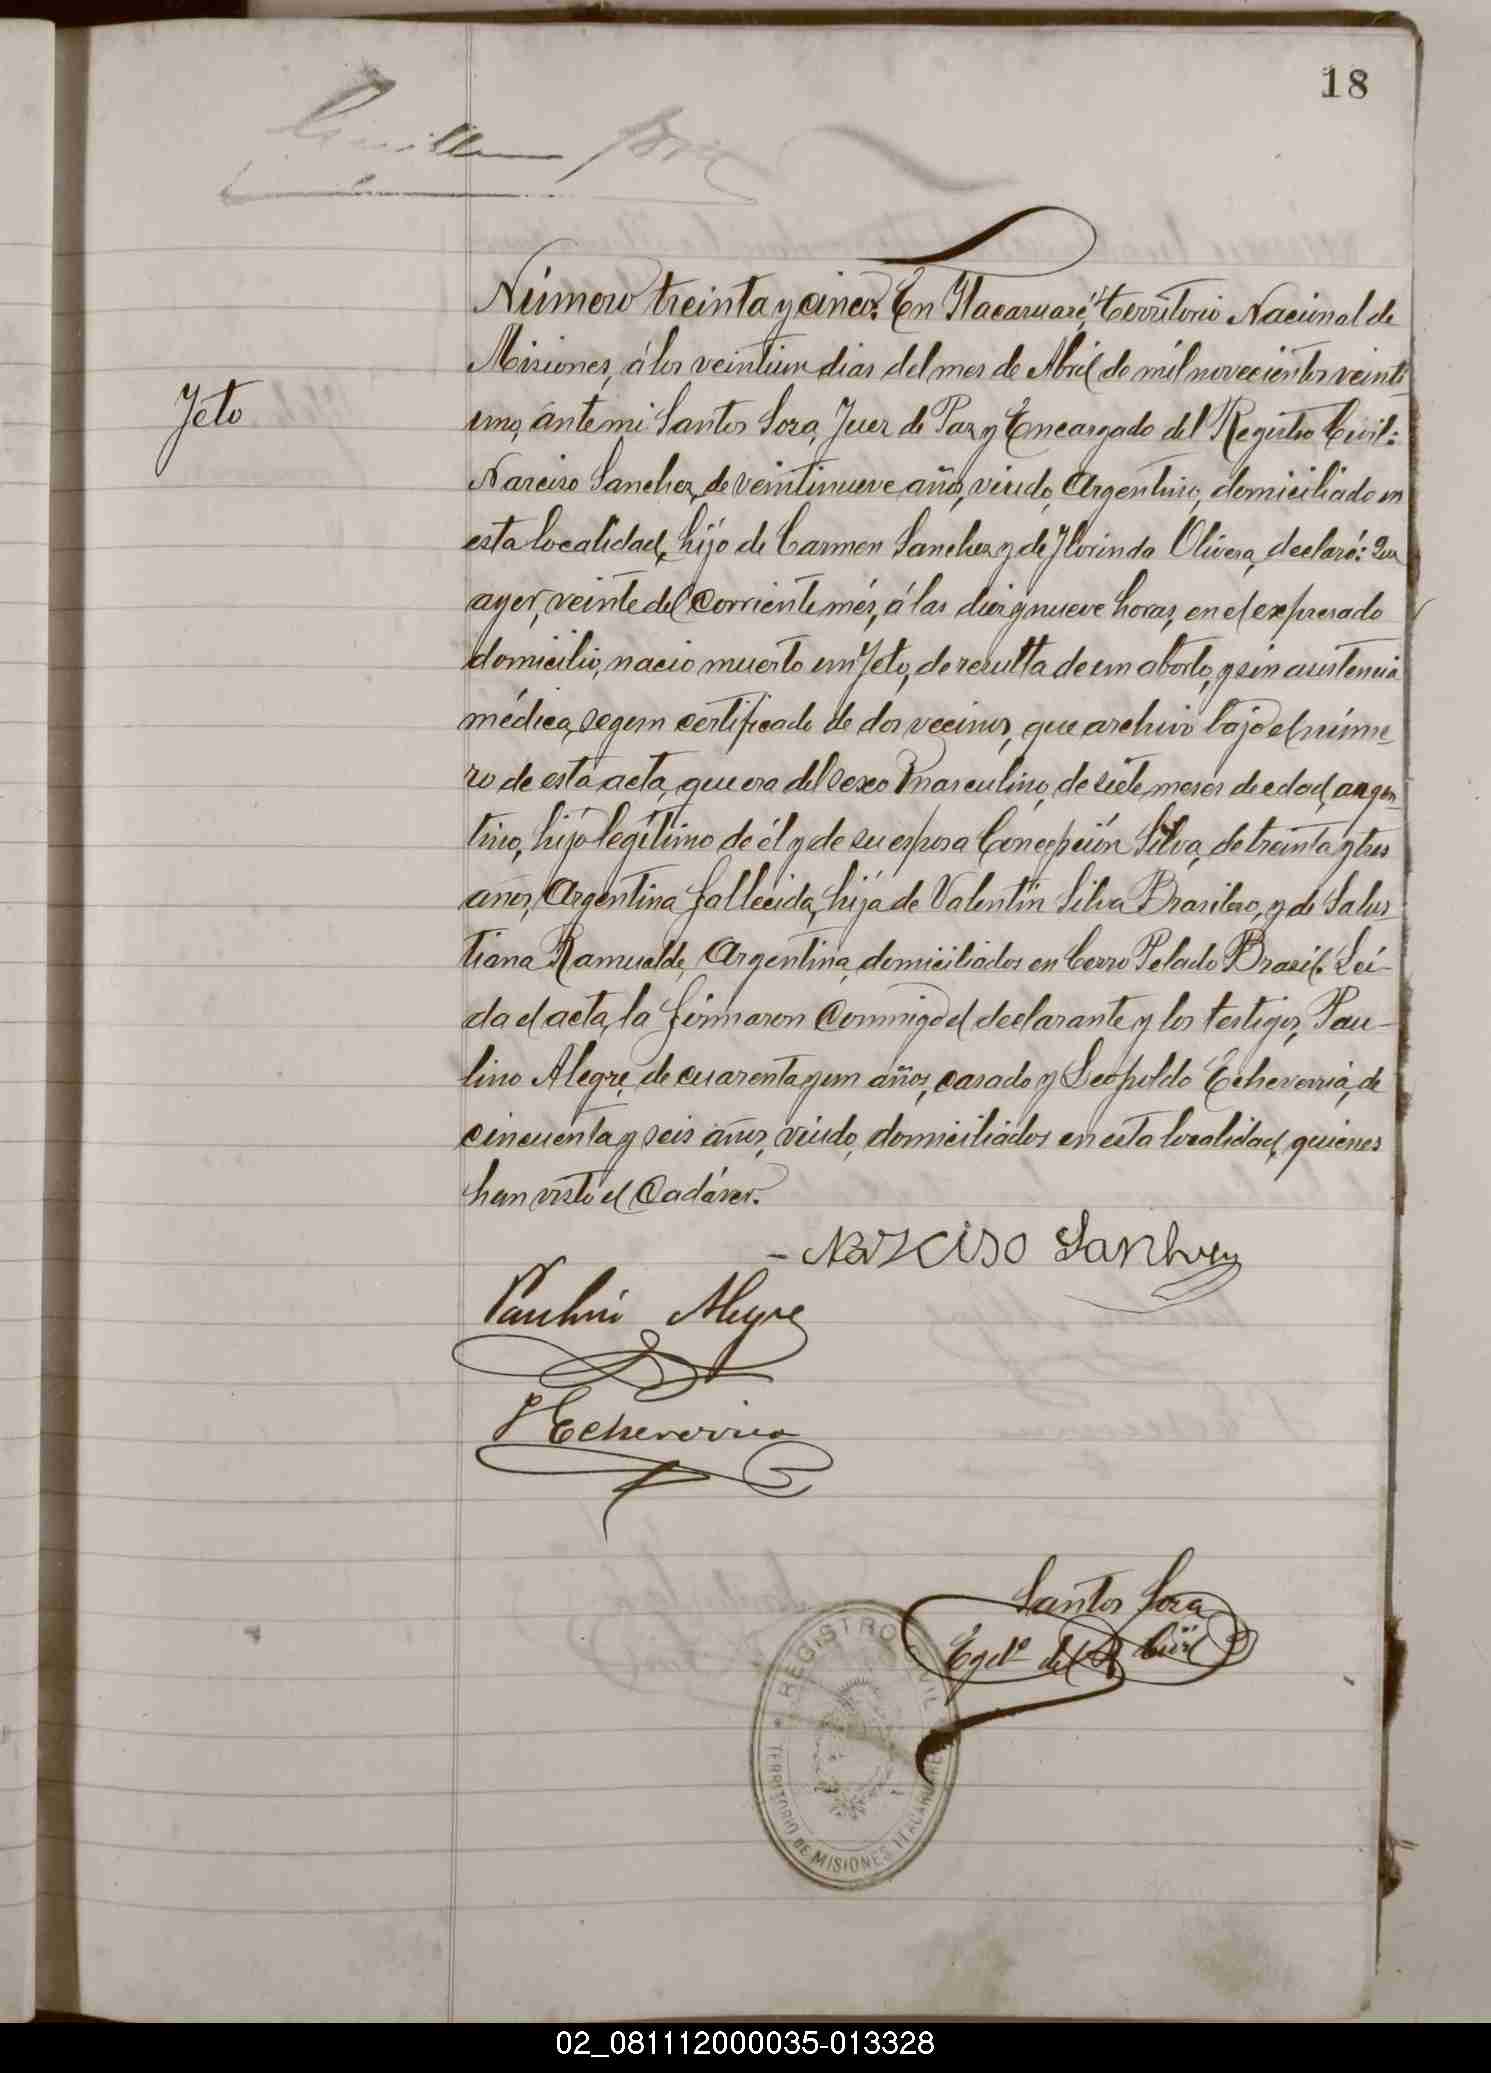 18
Número treinta y cinco. En Itacaruaré, Territorio Nacional de
Misiones, á los veintiun dias del mes de Abril de mil novecientos veinti
Feto
uno, ante mi Santos Sora, Juez de Paz y Encargado del Registro Civil:
Narciso Sanchez, de veintinueve años, viudo, Argentino, domiciliado en
esta localidad, hijo de Carmen Sanchez y de Florinda Olivera, declaró: Que
ayer, veinte del corriente més, á las diez y nueve horas, en el expresado
domicilio, nacio muerto un Feto, de resulta de un aborto, y sin asistencia
médica, segun certificado de dos vecinos, que archivo bajo el núme-
ro de esta acta, que era del sexo Masculino, de siete meses de edad, argen-
tino, hijo legítimo de él y de su esposa Concepción Silva, de treinta y tres
años, Argentina fallecida, hija de Valentín Silva Brasilero, y de Salus-
tiana Ramualde, Argentina, domiciliados en Cerro Pelado Brasil. Leí-
da el acta, la firmaron conmigo el declarante y los testigos, Pau-
lino Alegre, de cuarenta y un años, casado y Leopoldo Echeverria, de
cincuenta y seis años, viudo, domiciliados en esta localidad, quienes
han visto el cadáver.
Narciso Sanhez
Paulino Alegre
L Echeverria
Santos Sora
Egdo del R. Civil
REGISTRO CIVIL
TERRITORIO DE MISIONES ITACARUARE
02_081112000035-013328